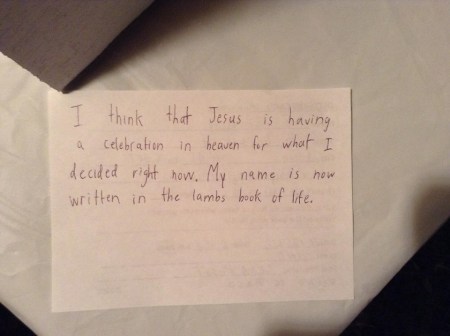 I think that Jesus is having
a celebration in heaven for what I
decided right now. My name is now
written in the lambs book of life.